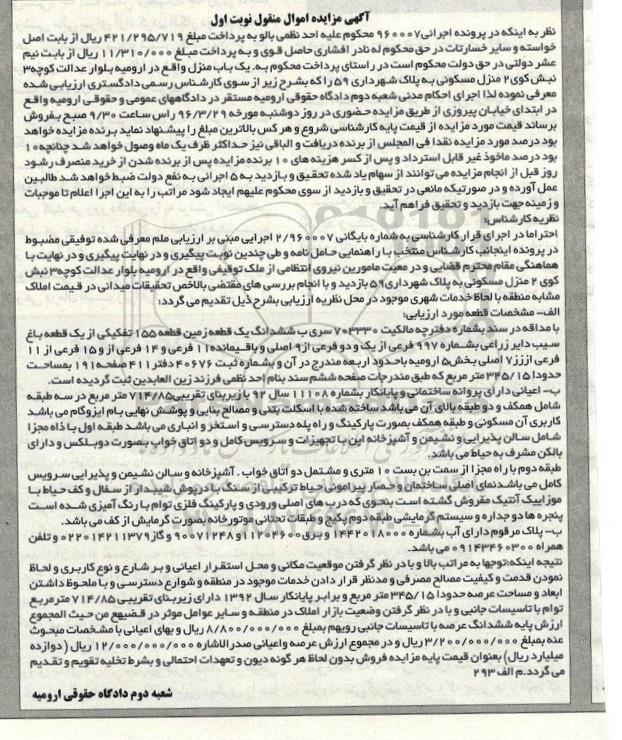 آگهی مزایده اموال منقول نوبت اول
نظر به اینکه در پرونده اجرائی ۹۶۰۰۰۷ محکوم علیه احد نظمی بالو به پرداخت مبلغ ۴۲۱/۲۹۵/۷۱۹ ریال از بابت اصل
خواسته و سایر خسارتات در حق محکوم له نادر افشاری حاصل قوی و به پرداخت مبلغ ۱۱/۳۱۰/۰۰۰ ریال از بابت نیم
عشر دولتی در حق دولت محکوم است در راستای پرداخت محکوم به. یک باب منزل واقع در ارومیه بلوار عدالت کوچه۳
نبش کوی ۲ منزل مسکونی به پلاک شهرداری ۵۹ را که بشرح زیر از سوی کارشناس رسمی دادگستری ارزیابی شده
معرفی نموده لذا اجرای احکام مدنی شعبه دوم دادگاه حقوقی ارومیه مستقر در دادگاههای عمومی و حقوقی ارومیه واقع
در ابتدای خیابان پیروزی از طریق مزایده حضوری در روز دوشنبه مورخه ۹۶/۳/۲۹ راس ساعت ۹/۳۰ صبح بفروش
برساند قیمت مورد مزایده از قیمت پایه کارشناسی شروع و هر کس بالاترین مبلغ را پیشنهاد نماید برنده مزایده خواهد
بود درصد مورد مزایده نقدا فی المجلس از برنده دریافت و الباقی نیز حداکثر ظرف یک ماه وصول خواهد شد چنانچه ۱۰
بود درصد ماخوذ غیر قابل استرداد و پس از کسر هزینه های ۱۰ برنده مزایده پس از برنده شدن از خرید منصرف رشود
روز قبل از انجام مزایده می توانند از سهام یاد شده تحقیق و بازدید به ۵ اجرائی به نفع دولت ضبط خواهد شد طالبین
عمل آورده و در صورتیکه مانعی در تحقیق و بازدید از سوی محکوم علیهم ایجاد شود مراتب را به این اجرا اعلام تا موجبات
و زمینه جهت بازدید و تحقیق فراهم آید.
نظریه کارشناس:
احتراما در اجرای قرار کارشناسی به شماره بایگانی ۲/۹۶۰۰۰۷ اجرایی مبنی بر ارزیابی ملم معرفی شده توفیقی مضبوط
در پرونده اینجانب کارشناس منتخب با راهنمایی حامل نامه و طی چندین نوبت پیگیری و در نهایت پیگیری و در نهایت با
هماهنگی مقام محترم قضایی و در معیت مامورین نیروی انتظامی از ملک توقیفی واقع در ارومیه بلوار عدالت کوچه۳ نبش
کوی ۲ منزل مسکونی به پلاک شهرداری ۵۹ بازدید و با انجام بررسی های مقتضی بالاخص تحقیقات میدانی در قیمت املاک
مشابه منطقه با لحاظ خدمات شهری موجود در محل نظریه ارزیابی بشرح ذیل تقدیم می گردد:
الف- مشخصات قطعه مورد ارزیابی:
با مداقه در سند بشماره دفترچه مالکیت ۷۰۳۳۳۰ سری ب ششدانگ یک قطعه زمین قطعه ۱۵۵ تفکیکی از یک قطعه باغ
سیب دایر زراعی بشماره ۹۹۷ فرعی از یک و دو فرعی از۹ اصلی و باقیمانده ۱۱ فرعی و ۱۴ فرعی از و ۱۵ فرعی از ۱۱
فرعی اززز۷ اصلی بخش۵ ارومیه باحدود اربعه مندرج در آن و بشماره ثبت ۴۰۶۷۶ دفتر ۴۱۱ صفحه ۱۹۱ بمساحت
حدودا ۳۴۵/۱۵ متر مربع که طبق مندرجات صفحه ششم سند بنام احد نظمی فرزند زین العابدین ثبت گردیده است.
ب- اعیانی دارای پروانه ساختمانی و پایانکار بشماره ۱۱۱۰۸ سال ۹۲ با زیربنای تقریبی ۷۱۴/۸۵ متر مربع در سه طبقه
شامل همکف و دو طبقه بالای آن می باشد ساخته شده با اسکلت بتنی و مصالح بنایی و پوشش نهایی بام ایزوگام می باشد
کاربری آن مسکونی و طبقه همکف بصورت پارکینگ و راه پله دسترسی و استخر و انباری می باشد طبقه اول با ذاه مجزا
شامل سالن پذیرایی و نشیمن و آشپزخانه این با تجهیزات و سرویس کامل و دو اتاق خواب بصورت دوبلکس و دارای
بالکن مشرف به حیاط می باشد.
طبقه دوم با راه مجزا از سمت بن بست ۱۰ متری و مشتمل دو اتاق خواب. آشپزخانه و سالن نشیمن و پذیرایی سرویس
کامل می باشد نمای اصلی ساختمان و حصار پیرامونی حیاط ترکیبی از سنگ با درپوش شیبدار از سفال و کف حیاط با
موزاییک آنتیک مفروش گشته است بنحوی که درب های اصلی ورودی و پارکینگ فلزی توام با رنگ آمیزی شده است
پنجره ها دو جداره و سیستم گرمایشی طبقه دوم پکیج و طبقات تحتانی موتورخانه بصورت گرمایش از کف می باشد.
ب- پلاک مرقوم دارای آب بشماره ۱۴۴۲۰۱۸۰۰۰ و برق ۱۱۲۰۴۶۰۰ و ۹۰۰۷۱۲۴۸ و گاز ۰۲۲۰۱۴۲۱۱۳۷۹ و تلفن
همراه ۰۹۱۴۳۴۶۰۳۰۰ می باشد.
نتیجه اینکه:توجها به مراتب بالا و با در نظر گرفتن موقعیت مکانی و محل استقرار اعیانی و بر شارع و نوع کاربری و لحاظ
نمودن قدمت و کیفیت مصالح مصرفی و مدنظر قرار دادن خدمات موجود در منطقه و شوارع دسترسی و با ملحوظ داشتن
ابعاد و مساحت عرصه حدودا ۳۴۵/۱۵ متر مربع و برابر پایانکار سال ۱۳۹۲ دارای زیربنای تقریبی ۷۱۴/۸۵ مترمربع
توام با تاسیسات جانبی و با در نظر گرفتن وضعیت بازار املاک در منطقه و سایر عوامل موثر در قضیهع من حیث المجموع
ارزش پایه ششدانگ عرصه با تاسیسات جانبی رویهم بمبلغ ۸/۸۰۰/۰۰۰/۰۰۰ ریال و بهای اعیانی با مشخصات مبحوث
عنه بمبلغ ۳/۲۰۰/۰۰۰/۰۰۰ ریال و در مجموع ارزش عرصه و اعیانی صدرالاشاره ۱۲/۰۰۰/۰۰۰/۰۰۰ ریال (دوازده
میلیارد ریال) بعنوان قیمت پایه مزایده فروش بدون لحاظ هر گونه دیون و تعهدات احتمالی و بشرط تخلیه تقویم و تقدیم
می گردد.م الف ۲۹۳
شعبه دوم دادگاه حقوقی ارومیه